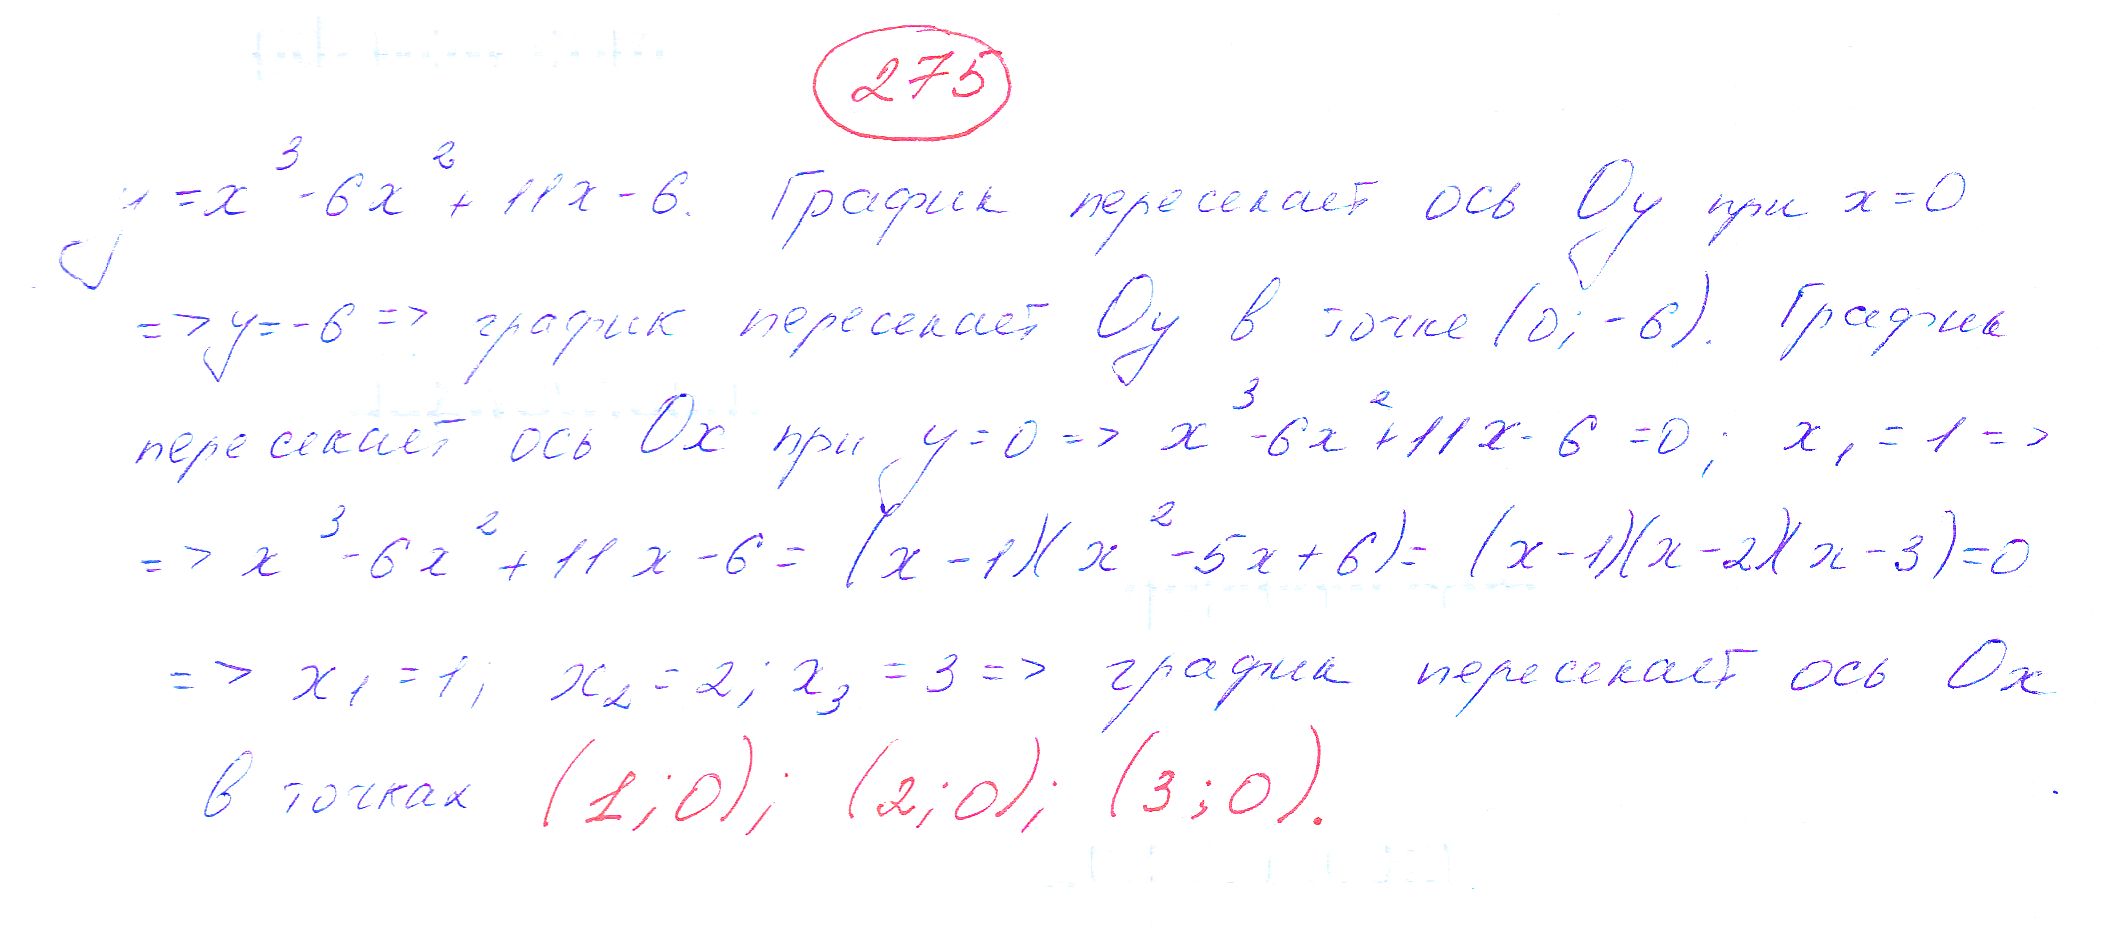 275
y = x³ - 6x² + 11x - 6. График пересекает ось Oy при x = 0
=> y = -6 => график пересекает Oy в точке (0; -6). График
пересекает ось Ox при y = 0 => x³ - 6x² + 11x - 6 = 0; x₁ = 1 =>
=> x³ - 6x² + 11x - 6 = (x - 1)(x² - 5x + 6) = (x - 1)(x - 2)(x - 3) = 0
=> x₁ = 1; x₂ = 2; x₃ = 3 => график пересекает ось Ox
в точках (1; 0); (2; 0); (3; 0).